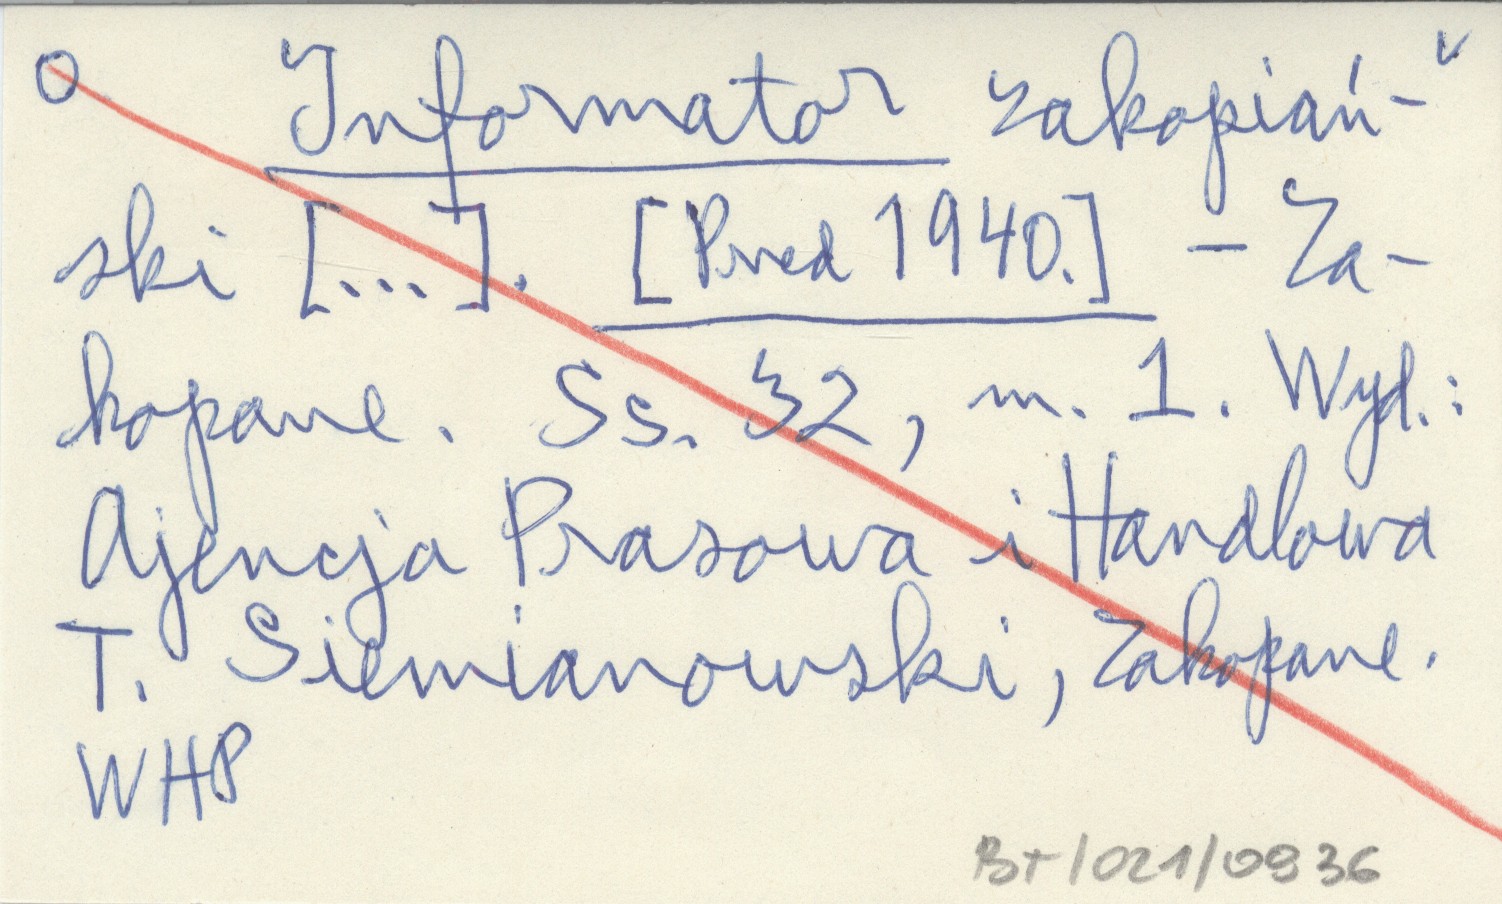 O Informator zakopiań- v
ski [...]. [Przed 1940.] – Za-
kopane. Ss. 32, m. 1. Wyd.:
Ajencja Prasowa i Handlowa
T. Siemianowski, Zakopane.
WHP
BT/021/0936